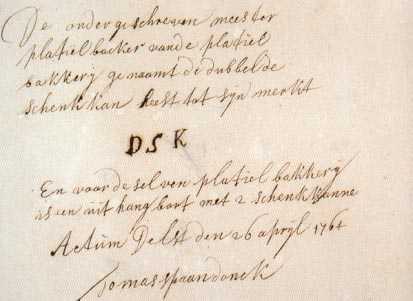 De ondergeschreven meester
platiel backer vande platiel
bakkerij genaamt de dubbelde
schenkkan heest tot syn merkt
DSK
En voor de selven platiel bakkerij
is een uit hang bort met 2 schenkkanne
Actum Delft den 26 april 1764
Tomas spaandonck